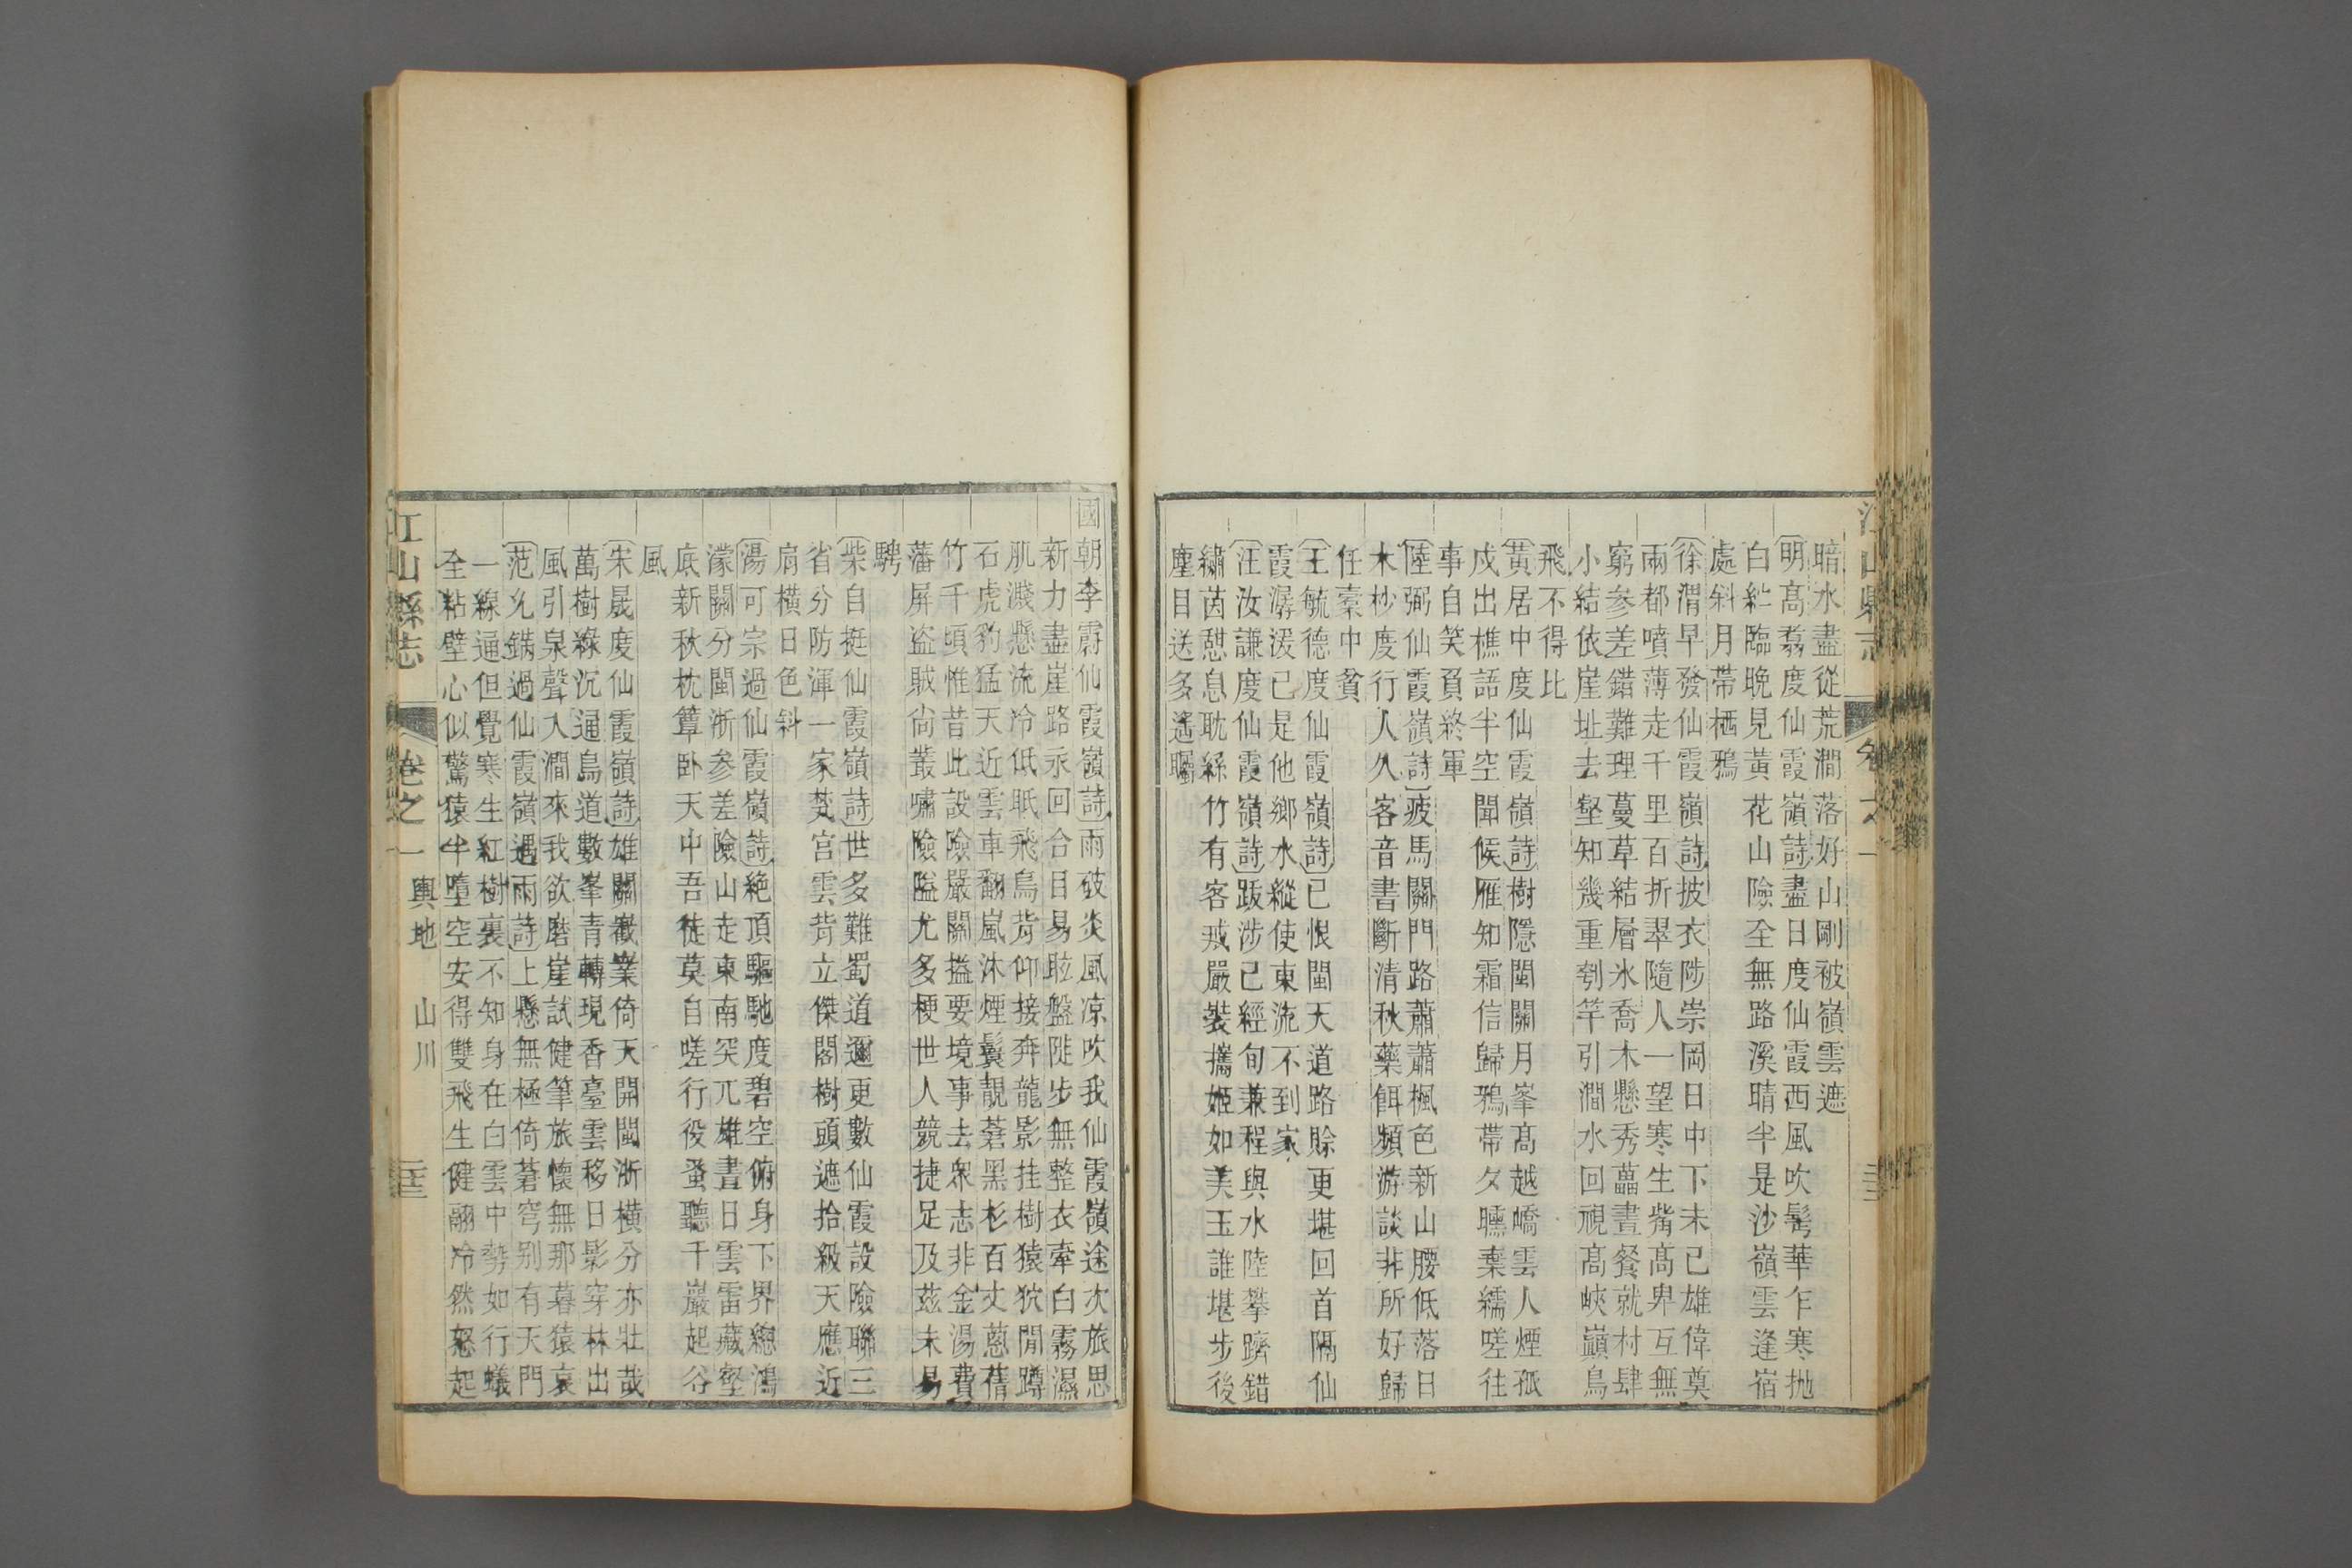 江山縣志
暗水盡從荒澗落好山剛被嶺雲遮
明髙翥度仙霞嶺詩盡日度仙霞西風吹髩華乍寒抛
白紵臨晩見黃花山險全無路溪晴半是沙嶺雲逢宿
處斜月帶栖鴉
徐渭早發仙霞嶺詩披衣陟崇岡日中下未已雄偉奠
兩都噴薄走千里百折翠隨人一望寒生觜髙卑互無
窮參差錯難理蔓草結層氷喬木懸秀藟晝餐就村肆
小結依崖址去壑知幾重刳竿引澗水回視髙峽巔鳥
飛不得比
黃居中度仙霞嶺詩樹隱閩關月峯髙越嶠雲人煙孤
戍出樵語半空聞候雁知霜信歸鴉帶夕曛棄繻嗟往
事自笑負終軍
陸弼仙霞嶺詩疲馬關門路蕭蕭楓色新山腰低落日
木杪度行人久客音書斷清秋藥餌頻游談非所好歸
任橐中貧
王毓德度仙霞嶺詩已恨閩天道路賒更堪回首隔仙
霞潺湲已是他鄉水縱使東流不到家
汪汝謙度仙霞嶺詩跋涉已經旬兼程與水陸攀躋錯
繡茵憩息耽絲竹有客戒嚴裝攜姬如美玉誰堪步後
塵目送多遙矚
國朝李霨仙霞嶺詩雨破炎風凉吹我仙霞嶺途次旅思
新力盡崖路永回合目易眩盤陡步無整衣牽白霧濕
肌濺懸流冷低眂飛鳥背仰接奔龍影挂樹猿狖閒蹲
石虎豹猛天近雲車翻嵐沐煙鬟靚蒼黑杉百丈蔥蒨
竹千頃惟昔此設險嚴關搤要境事去衆志非金湯費
藩屏盗賊尙叢嘯險隘尤多梗世人競捷足及茲未易
騁
柴自挺仙霞嶺詩世多難蜀道邇更數仙霞設險聯三
省分防渾一家梵宮雲背立傑閣樹頭遮拾級天應近
肩橫日色斜
湯可宗過仙霞嶺詩絶頂驅馳度碧空俯身下界總鴻
濛關分閩浙参差險山走東南突兀雄晝日雲雷藏壑
底新秋枕簟卧天中吾徒莫自嗟行役蚤聽千巖起谷
風
宋晟度仙霞嶺詩雄關嶻嶪倚天開閩浙橫分亦壯哉
萬樹綠沉通鳥道數峯青轉現香臺雲移日影穿林出
風引泉聲入澗來我欲磨崖試健筆旅懷無那暮猿哀
范允䥑過仙霞嶺遇雨詩上懸無極倚蒼穹别有天門
一線通但覺寒生紅樹裏不知身在白雲中勢如行蟻
全粘壁心似驚猿半墮空安得雙飛生健翮冷然怒起
江山縣志 卷之一 輿地 山川